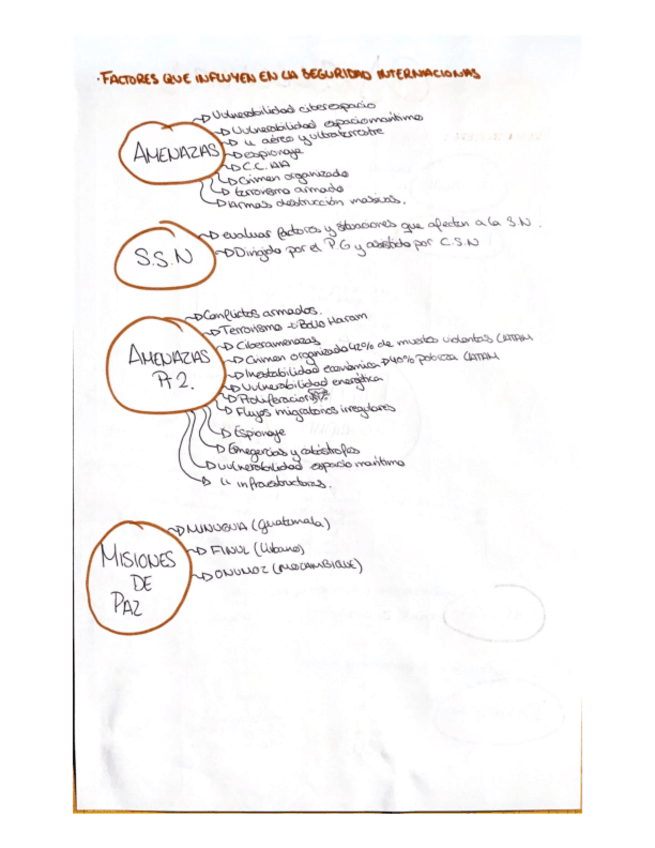 ·FACTORES QUE INFLUYEN EN LA SEGURIDAD INTERNACIONAS
AMENAZAS
Vulnerabilidad ciberespacio
Vulnerabilidad espacio marítimo
u aéreo y ultraterrestre
espionaje
C.C. AA
Crimen organizado
terrorismo armado
Armas destrucción masivas.
S.S.N
evaluar factores y situaciones que afecten a la S.N.
Dirigido por el P.G y asistido por C.S.N
AMENAZAS Pt 2.
Conflictos armados.
Terrorismo Boko Haram
Ciberamenazas
Crimen organizado 42% de muertes violentas LATAM
Inestabilidad económica 40% pobreza LATAM
Vulnerabilidad energética
Proliferacion
Flujos migratorios irregulares
Espionaje
Emegercias y catástrofes
vulnerabilidad espacio marítimo
u infraestructuras.
MISIONES DE PAZ
MINUGUA (Guatemala)
FINUL (Líbano)
ONUMOZ (MOZAMBIQUE)